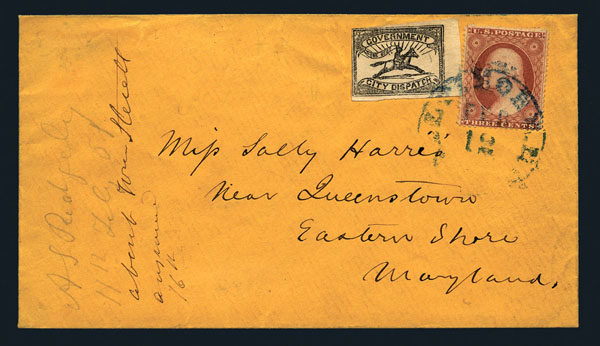 GOVERNMENT
CITY DISPATCH
U.S. POSTAGE
THREE CENTS
BALTIMORE
FEB
12
Miss Sally Harris
Near Queenstown
Eastern Shore
Maryland,
A S Ridgely
about
answered
16